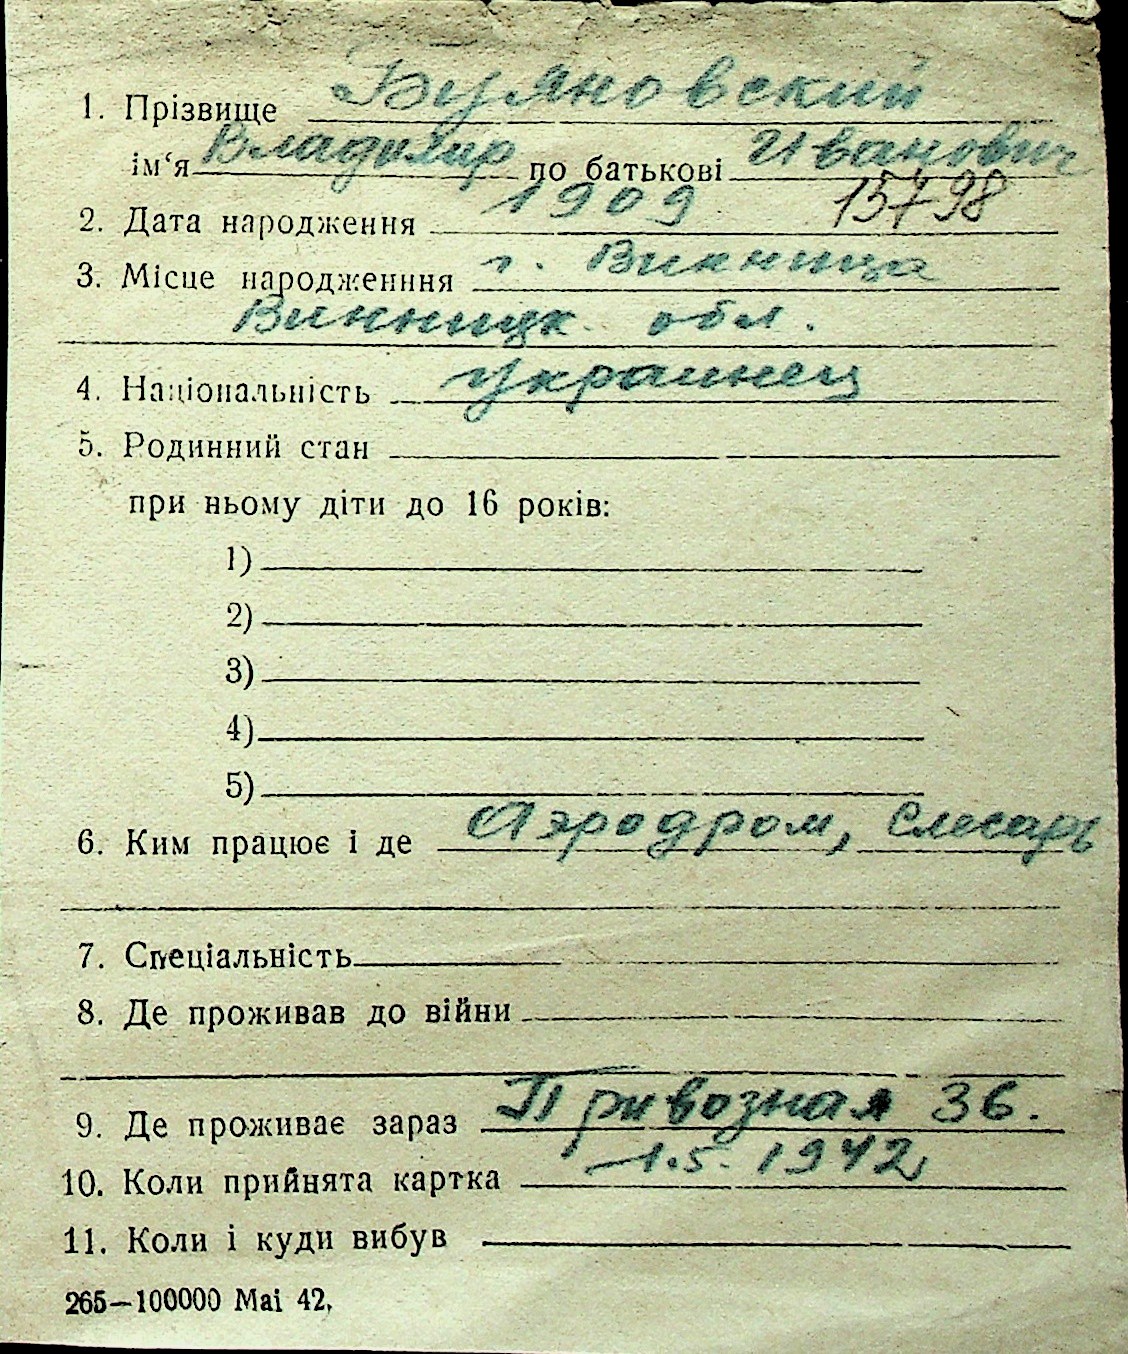 1. Прізвище Буяновский
ім‘я Владимир по батькові Иванович
2. Дата народження 1909 15798
3. Місце народженння г. Винница
Винницк обл.
4. Національність Украинец
5. Родинний стан
при ньому діти до 16 років:
1)
2)
3)
4)
5)
6. Ким працює і де Аэродром, слесарь
7. Спеціальність
8. Де проживав до війни
9. Де проживає зараз Привозная 36.
10. Коли прийнята картка 1.5.1942
11. Коли і куди вибув
265—100000 Mai 42.